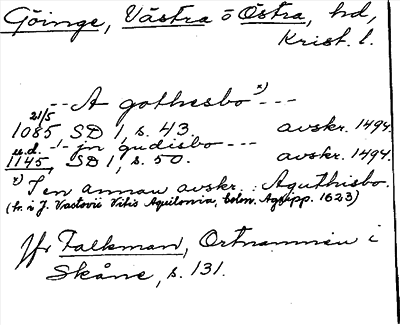 Göinge, Västra o Östra, hd,
Krist. l.
-- A gothesbo x) ---
21/5
1085 SD 1, s. 43. avskr. 1494.
u.d. -"- jn gudisbo ---
1145, SD 1, s. 50. avskr. 1494.
x) I en annan avskr.: Aguthisbo.
(tr. i J. Vastovii Vitis Aquilonia, Colon. Agripp. 1623)
Jfr Falkman, Ortnamnen i
Skåne, s. 131.